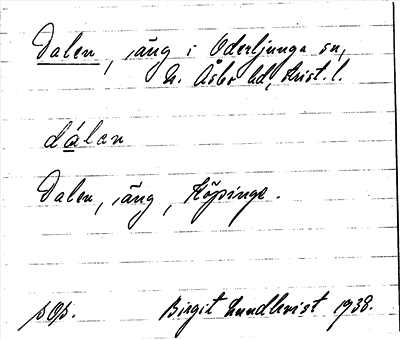 Dalen, äng i Oderljunga sn,
N. Åsbo hd, Krist. l.
dálen
Dalen, äng, Köpinge.
pop. Birgit Lundkvist 1938.